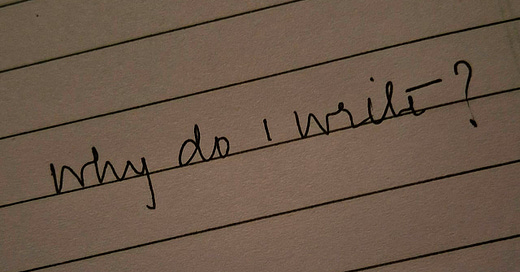 Why do I write?